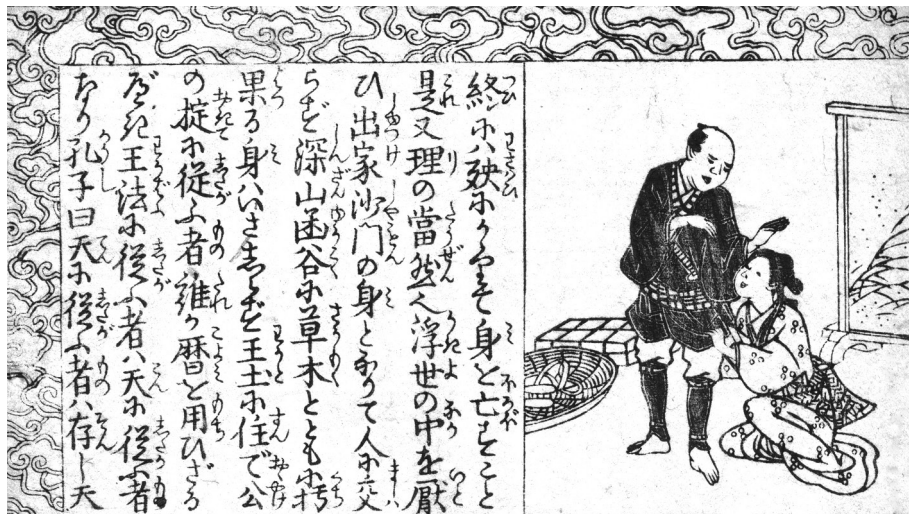 終にハ殃にかゝりて身を亡すこと
是又理の當然也浮世の中を厭
ひ出家沙門の身となりて人に交
らず深山幽谷に草木とともに朽
果る身ハいざしらず王土に住で公
の掟に従ふ者誰か暦を用ひざる
べき王法に従ふ者ハ天に従ふ者
なり孔子曰天に従ふ者ハ存し天